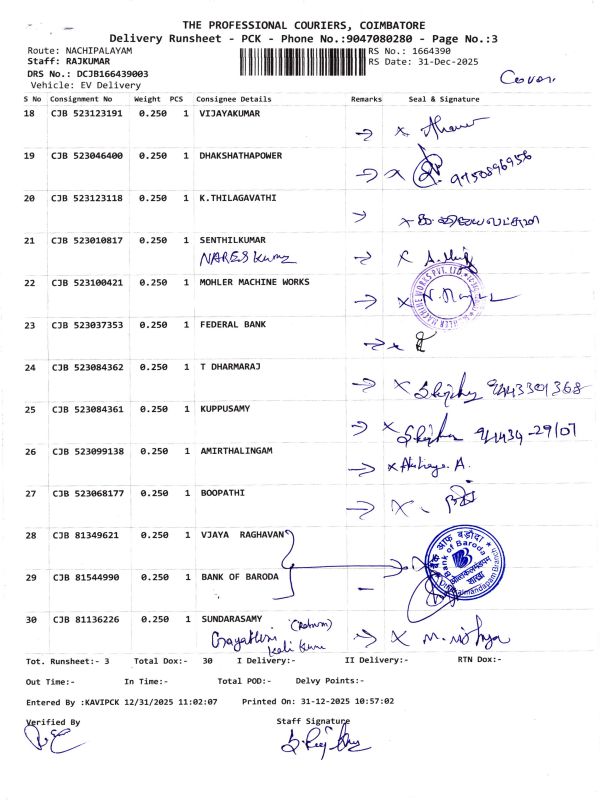 THE PROFESSIONAL COURIERS, COIMBATORE
Delivery Runsheet - PCK - Phone No.:9047080280 - Page No.:3
Route: NACHIPALAYAM
RS No.: 1664390
Staff: RAJKUMAR
RS Date: 31-Dec-2025
DRS No.: DCJB166439003
Vehicle: EV Delivery
S No Consignment No Weight PCS Consignee Details Remarks Seal & Signature
18 CJB 523123191 0.250 1 VIJAYAKUMAR
19 CJB 523046400 0.250 1 DHAKSHATHAPOWER
9750896956
20 CJB 523123118 0.250 1 K.THILAGAVATHI
21 CJB 523010817 0.250 1 SENTHILKUMAR
NARESkumar
22 CJB 523100421 0.250 1 MOHLER MACHINE WORKS
MOHLER MACHINE WORKS PVT. LTD.
23 CJB 523037353 0.250 1 FEDERAL BANK
24 CJB 523084362 0.250 1 T DHARMARAJ
9443301368
25 CJB 523084361 0.250 1 KUPPUSAMY
26 CJB 523099138 0.250 1 AMIRTHALINGAM
27 CJB 523068177 0.250 1 BOOPATHI
28 CJB 81349621 0.250 1 VJAYA RAGHAVAN
बैंक ऑफ बड़ौदा
Bank of Baroda
शाखा
29 CJB 81544990 0.250 1 BANK OF BARODA
30 CJB 81136226 0.250 1 SUNDARASAMY
(Ratnam)
Tot. Runsheet:- 3 Total Dox:- 30 I Delivery:- II Delivery:- RTN Dox:-
Out Time:- In Time:- Total POD:- Delvy Points:-
Entered By :KAVIPCK 12/31/2025 11:02:07 Printed On: 31-12-2025 10:57:02
Verified By
Staff Signature